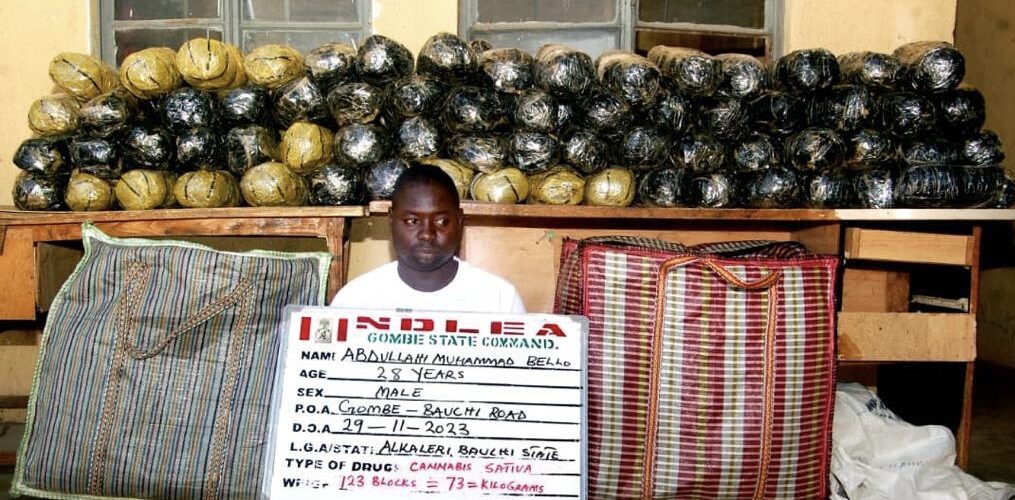 NDLEA
GOMBE STATE COMMAND.
NAME ABDULLAHI MUHAMMAD BELLO
AGE 28 YEARS
SEX MALE
P.O.A. GOMBE - BAUCHI ROAD
D.O.A 29-11-2023
L.G.A/STATE ALKALERI, BAUCHI STATE
TYPE OF DRUG: CANNABIS SATIVA
123 BLOCKS = 73 = KILOGRAMS